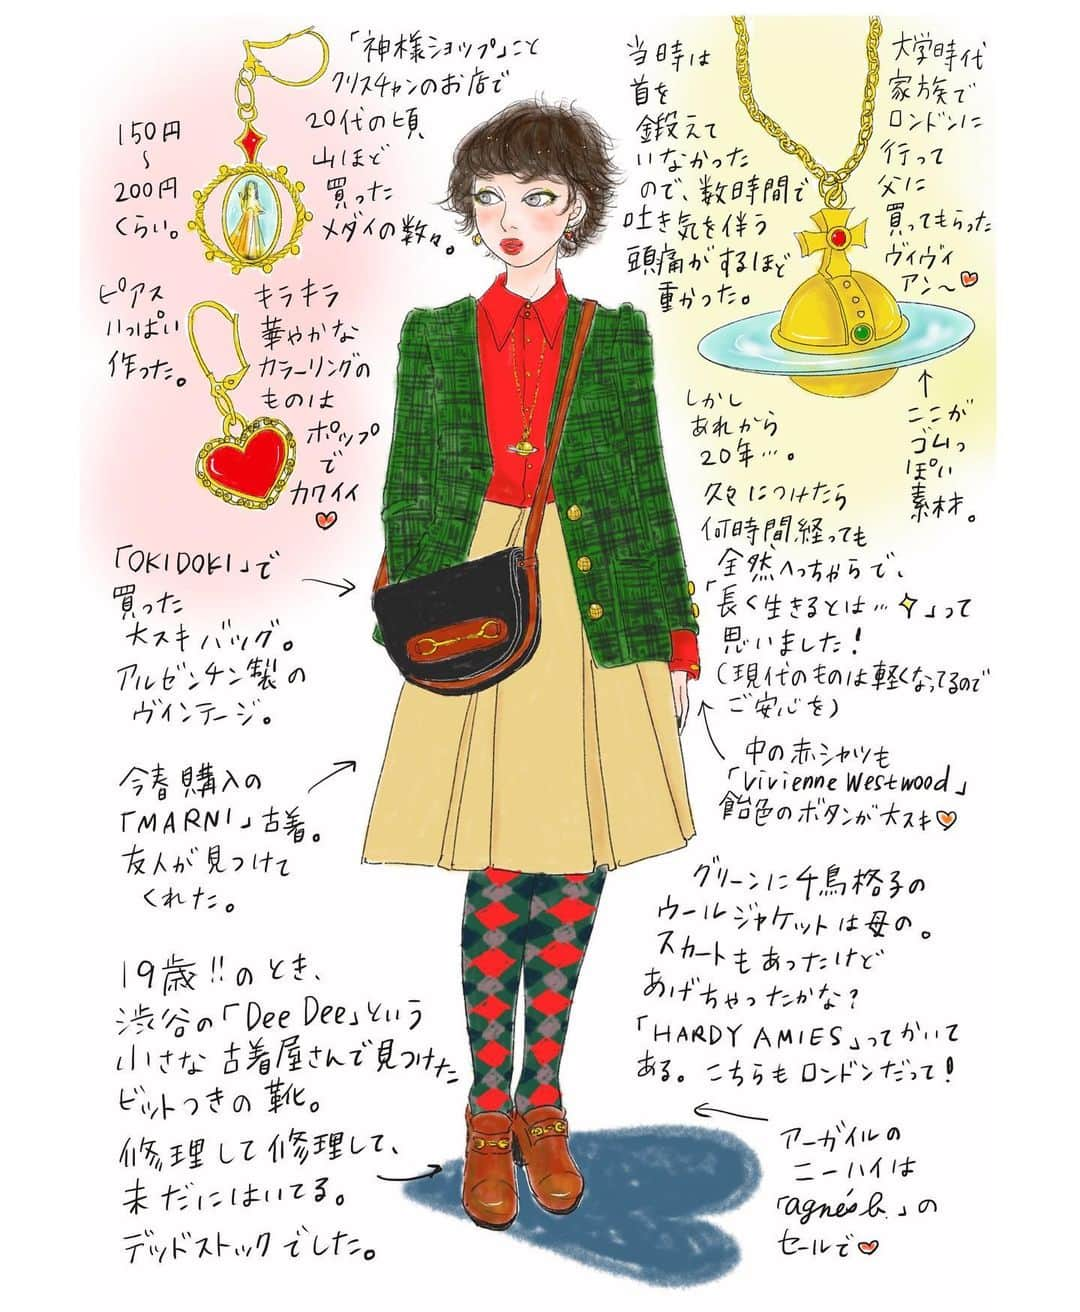 「神様ショップ」こと
クリスチャンのお店で
20代の頃
山ほど
買った
メダイの数々。
150円
〜
200円
くらい。
ピアス
いっぱい
作った。
キラキラ
華やかな
カラーリングの
ものは
ポップ
で
カワイイ
大学時代
家族で
ロンドンに
行って
父に
買ってもらった
ヴィヴィ
アン〜
当時は
首を
鍛えて
いなかった
ので、数時間で
吐き気を伴う
頭痛がするほど
重かった。
ここが
ゴムっ
ぽい
素材。
しかし
あれから
20年…。
久々につけたら
何時間経っても
全然へっちゃらで、
「長く生きるとは…」って
思いました!
(現代のものは軽くなってるので
ご安心を)
「OKIDOKI」で
買った
大スキバッグ。
アルゼンチン製の
ヴィンテージ。
中の赤シャツも
「Vivienne Westwood」
飴色のボタンが大スキ
今春購入の
「MARNI」古着。
友人が見つけて
くれた。
グリーンに千鳥格子の
ウールジャケットは母の。
スカートもあったけど
あげちゃったかな?
「HARDY AMIES」ってかいて
ある。こちらもロンドンだって!
19歳!!のとき、
渋谷の「Dee Dee」という
小さな古着屋さんで見つけた
ビットつきの靴。
修理して修理して、
未だにはいてる。
デッドストックでした。
アーガイルの
ニーハイは
「agnès b.」の
セールで